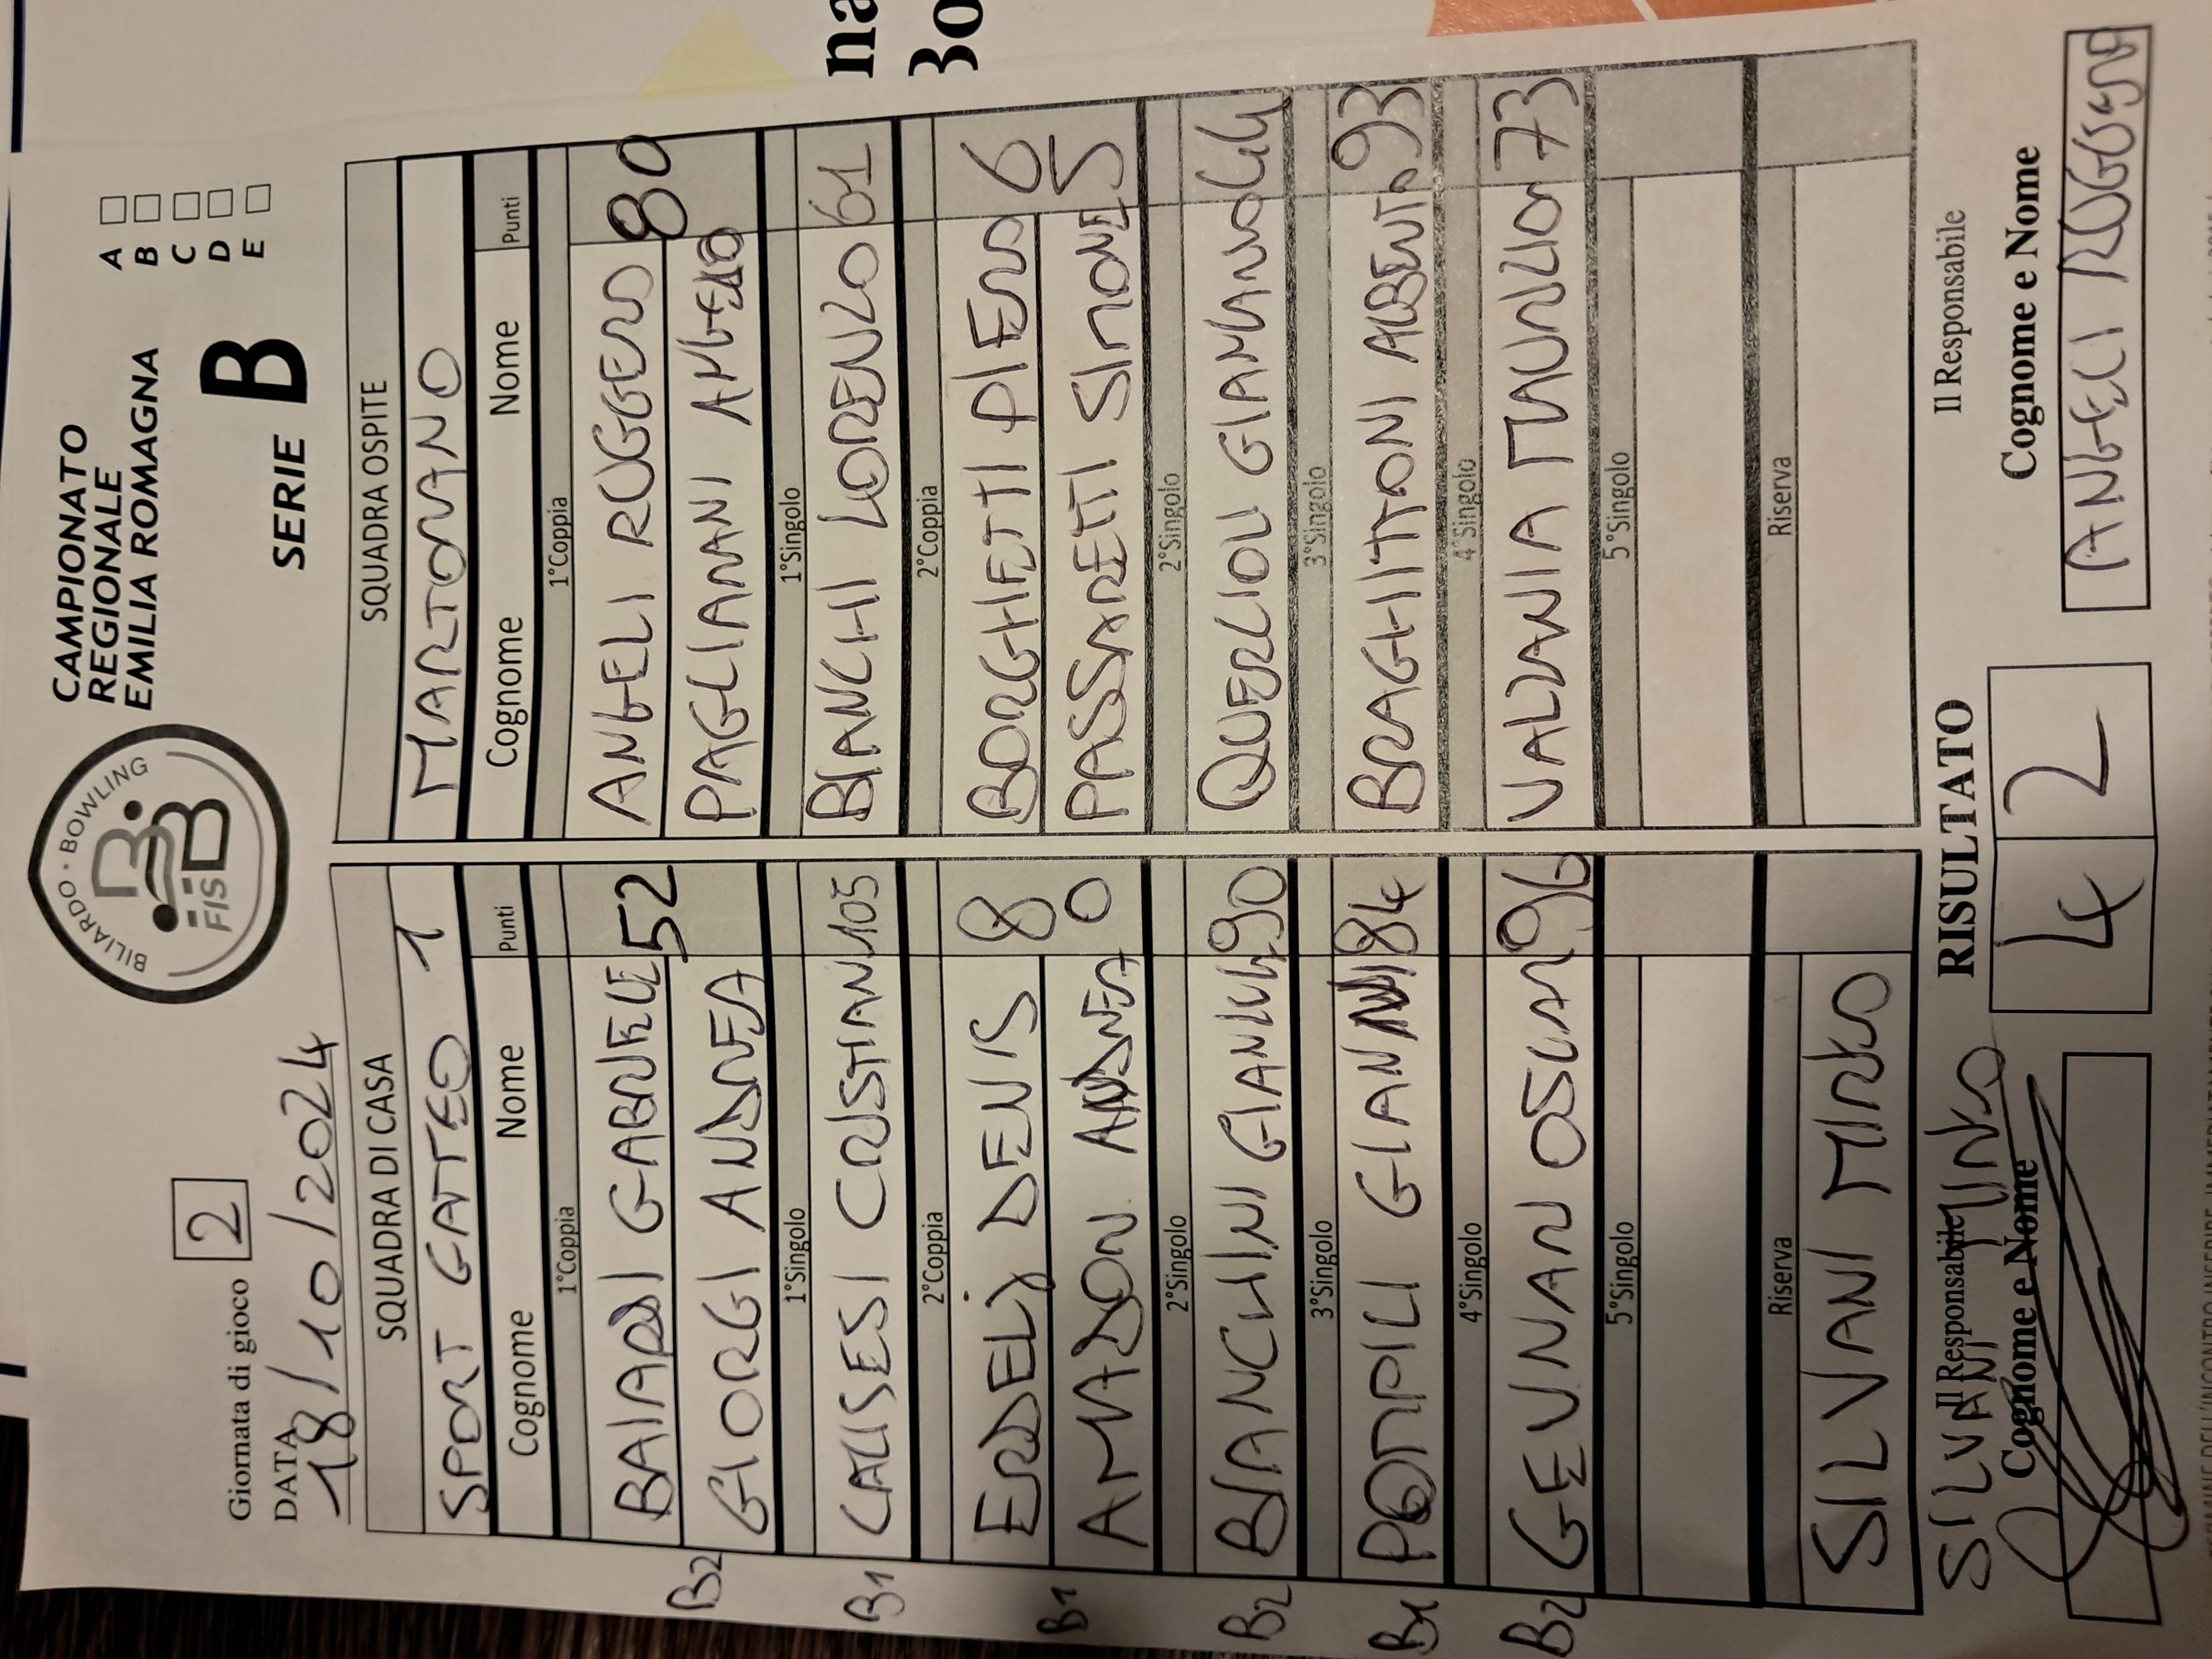 BILIARDO · BOWLING
FISBB
CAMPIONATO
REGIONALE
EMILIA ROMAGNA
A
B
C
D
E
SERIE B
Giornata di gioco 2
DATA 18/10/2024
SQUADRA DI CASA
SPORT GATTEO 1
Cognome Nome Punti
1°Coppia
BAIARDI GABRIELE 52
GIORGI ANDREA
B2
1°Singolo
CALISESI CRISTIAN 105
B1
2°Coppia
ERDELJ DENIS 8
AMADORI ANDREA 0
B1
2°Singolo
BIANCHINI GIANLUCA 90
B2
3°Singolo
POMPILI GIANNI 84
B1
4°Singolo
OSCAR 96
B2
5°Singolo
Riserva
SILVANI MIRKO
SQUADRA OSPITE
MARTORANO
Cognome Nome Punti
1°Coppia
ANGELI RUGGERO 80
PAGLIARANI ANGELO
1°Singolo
BIANCHI LORENZO 61
2°Coppia
BORGHETTI PIERO 6
PASSARETTI SIMONE 5
2°Singolo
QUERCIOLI
3°Singolo
BRAGHITTONI ALBERTO 93
4°Singolo
VALDINIA MAURIZIO 73
5°Singolo
Riserva
Il Responsabile
SILVANI MIRKO
Cognome e Nome
RISULTATO
4 2
Il Responsabile
Cognome e Nome
ANGELI RUGGERO
na
Bo